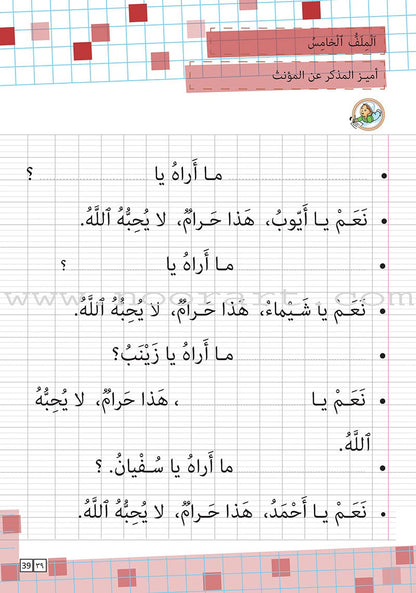 اَلْمِلَفُّ ٱلْخامِسُ
أميز المذكر عن المؤنث
• ........ مـا أَراهُ يا ........ ؟
• نَعَـمْ يـا أَيّوبُ، هَذا حَـرامٌ، لا يُحِبُّهُ ٱللَّهُ.
• ........ مـا أَراهُ يا ........ ؟
www.noorart.com
• نَعَـم يا شَـيْماءْ، هَذا حَـرامٌ، لا يُحِبُّهُ ٱللَّهُ.
• ........ مـا أَراهُ يا زَيْنَبُ؟
• نَعَـمْ يـا ........ ، هَذا حَرامٌ، لا يُحِبُّهُ
ٱللَّهُ.
• ........ ما أَراهُ يا سُـفْيانُ. ؟
• نَعَـمْ يـا أَحْمَدُ، هَذا حَـرامٌ، لا يُحِبُّهُ ٱللَّهُ.
39 ٣٩